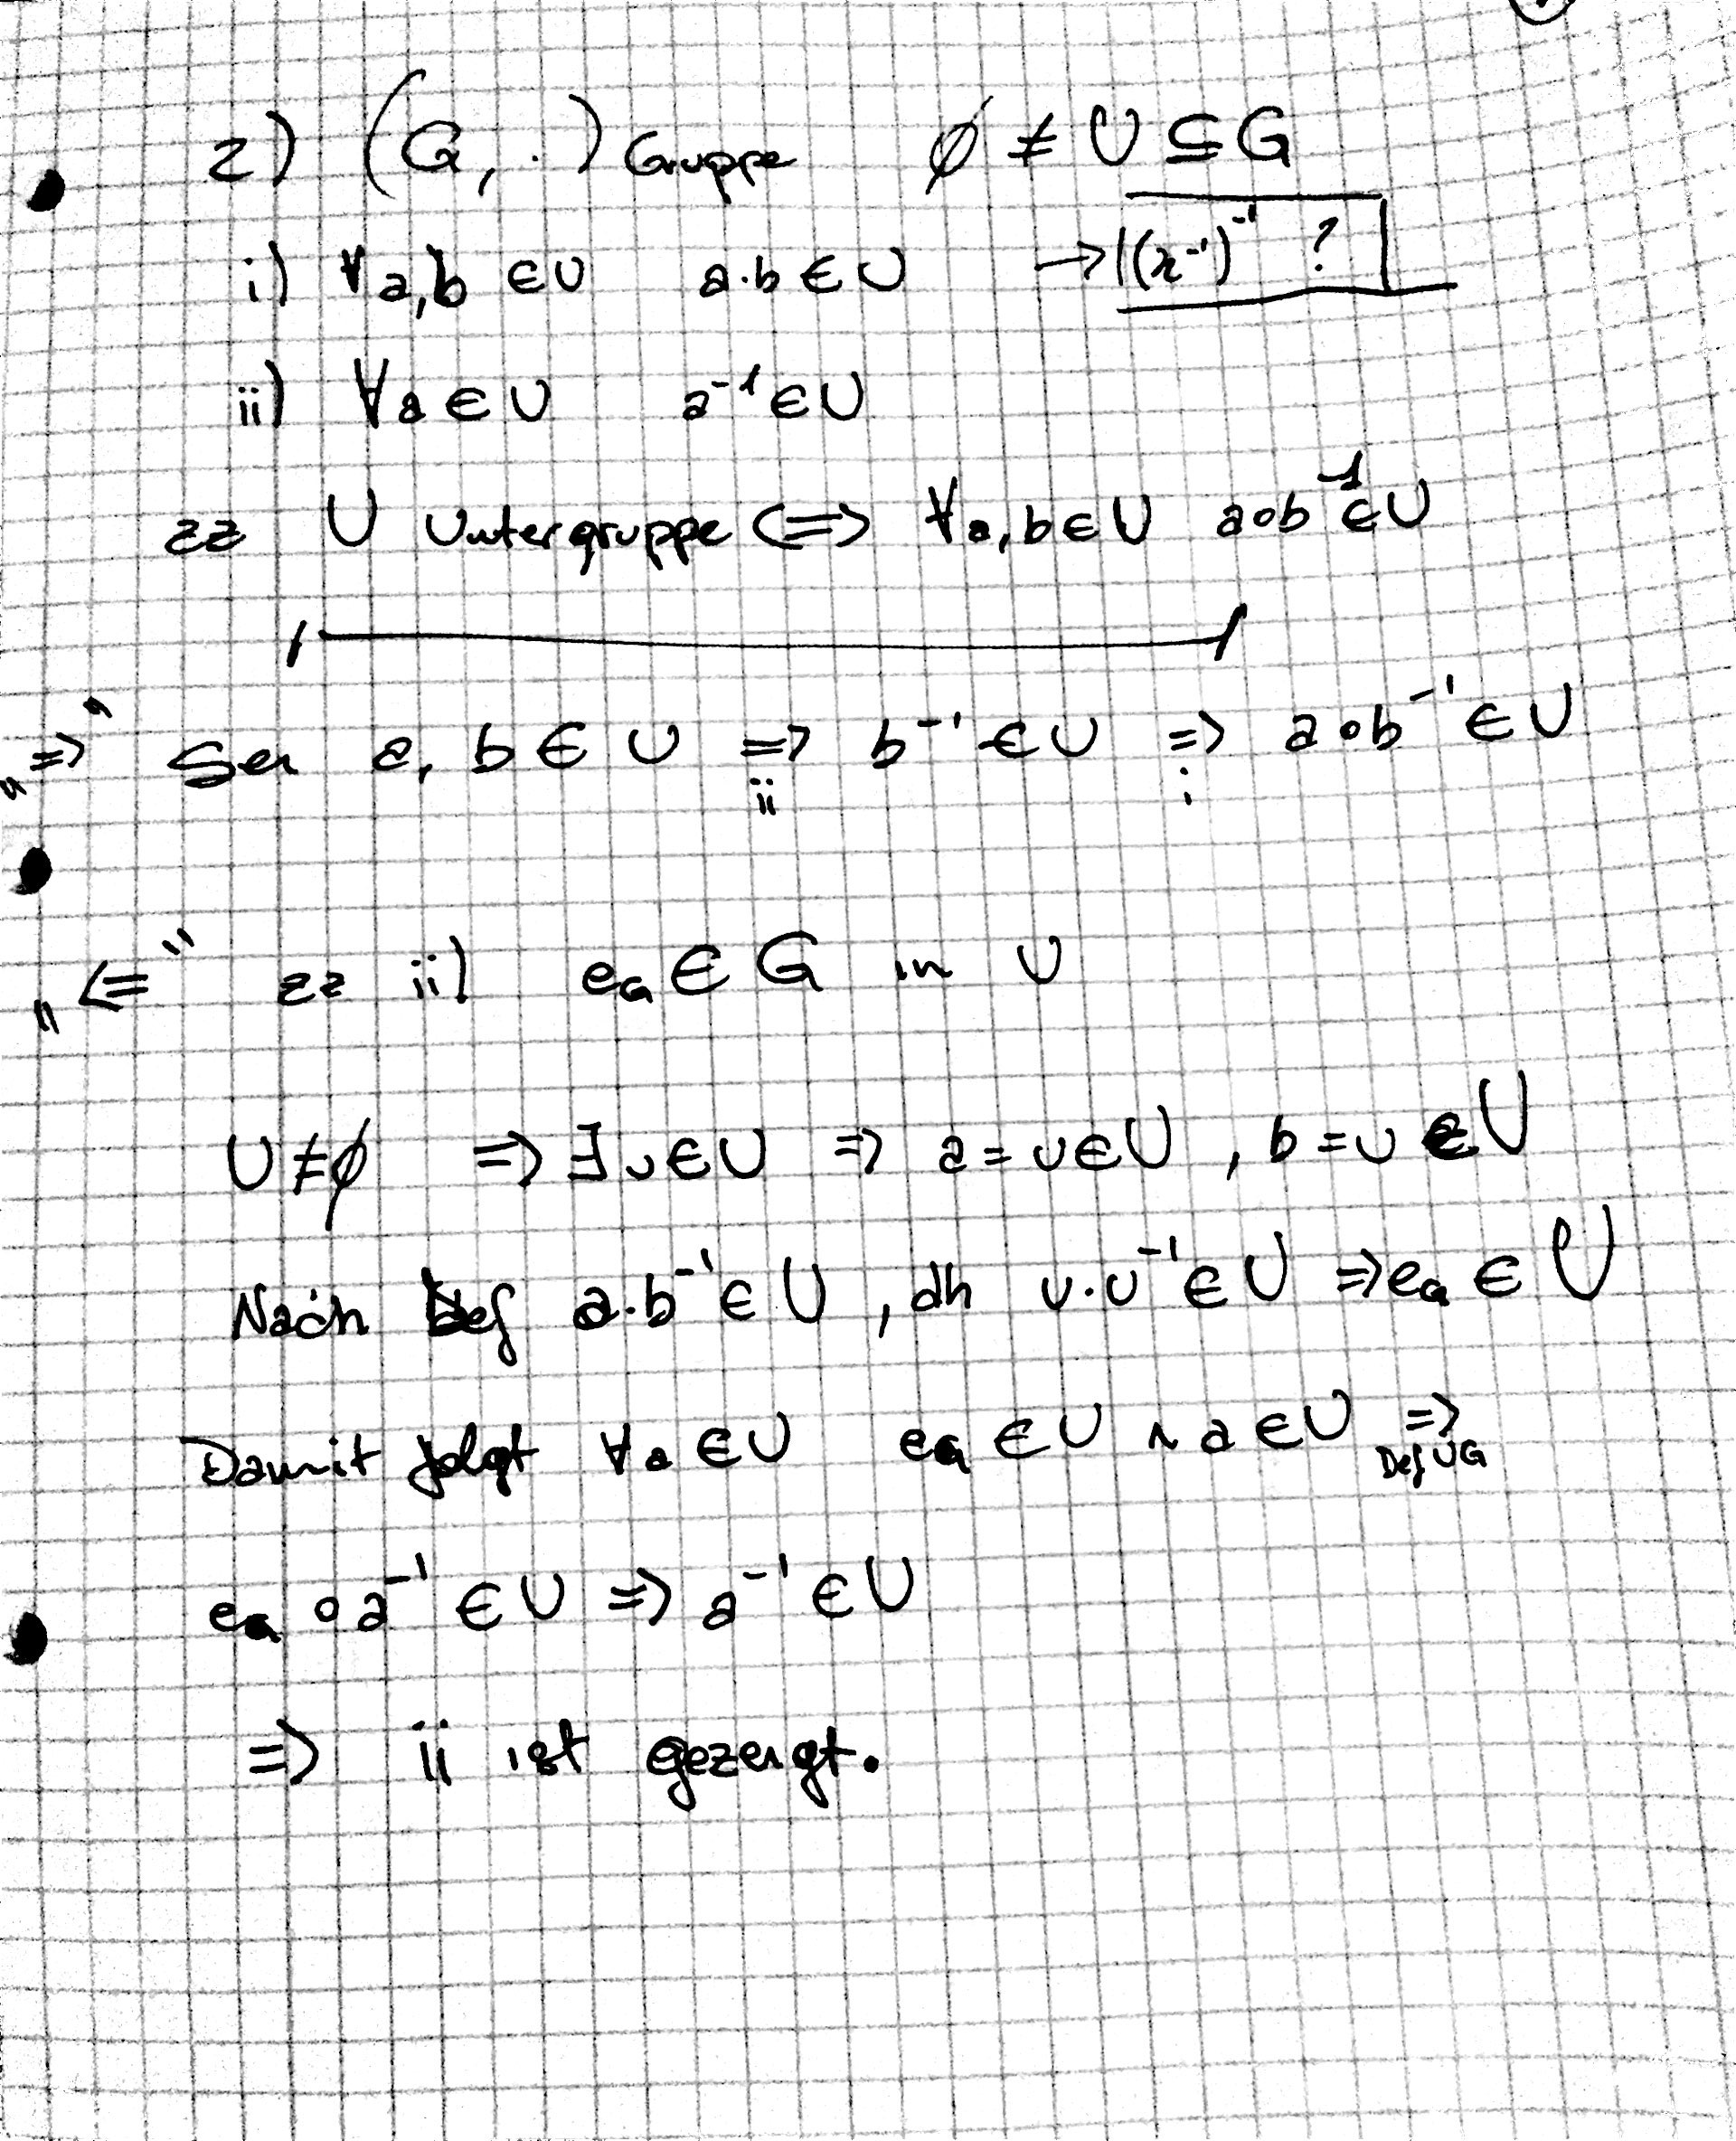 2) (G, ·) Gruppe ∅ ≠ U ⊆ G
i) ∀a,b ∈ U a·b ∈ U → (x⁻¹)⁻¹ ?
ii) ∀a ∈ U a⁻¹ ∈ U
zz U Untergruppe <=> ∀a,b ∈ U a∘b⁻¹ ∈ U
„=>“ Sei a, b ∈ U => b⁻¹ ∈ U => a∘b⁻¹ ∈ U
ii i
„<=“ zz ii) e_G ∈ G in U
U ≠ ∅ => ∃u ∈ U => a = u ∈ U , b = u ∈ U
Nach Def a·b⁻¹ ∈ U , dh u·u⁻¹ ∈ U => e_G ∈ U
Damit folgt ∀a ∈ U e_G ∈ U ∧ a ∈ U =>
Def UG
e_G ∘ a⁻¹ ∈ U => a⁻¹ ∈ U
=> ii ist gezeigt.